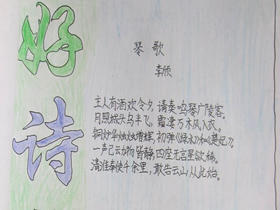 好诗
琴歌
李颀
主人有酒欢今夕,请奏鸣琴广陵客。
月照城头乌半飞,霜凄万木风入衣。
铜炉华烛烛增辉,初弹《绿水》和《楚妃》。
一声已动物皆静,四座无言星欲稀。
清淮奉使千余里,敢告云山从此始。